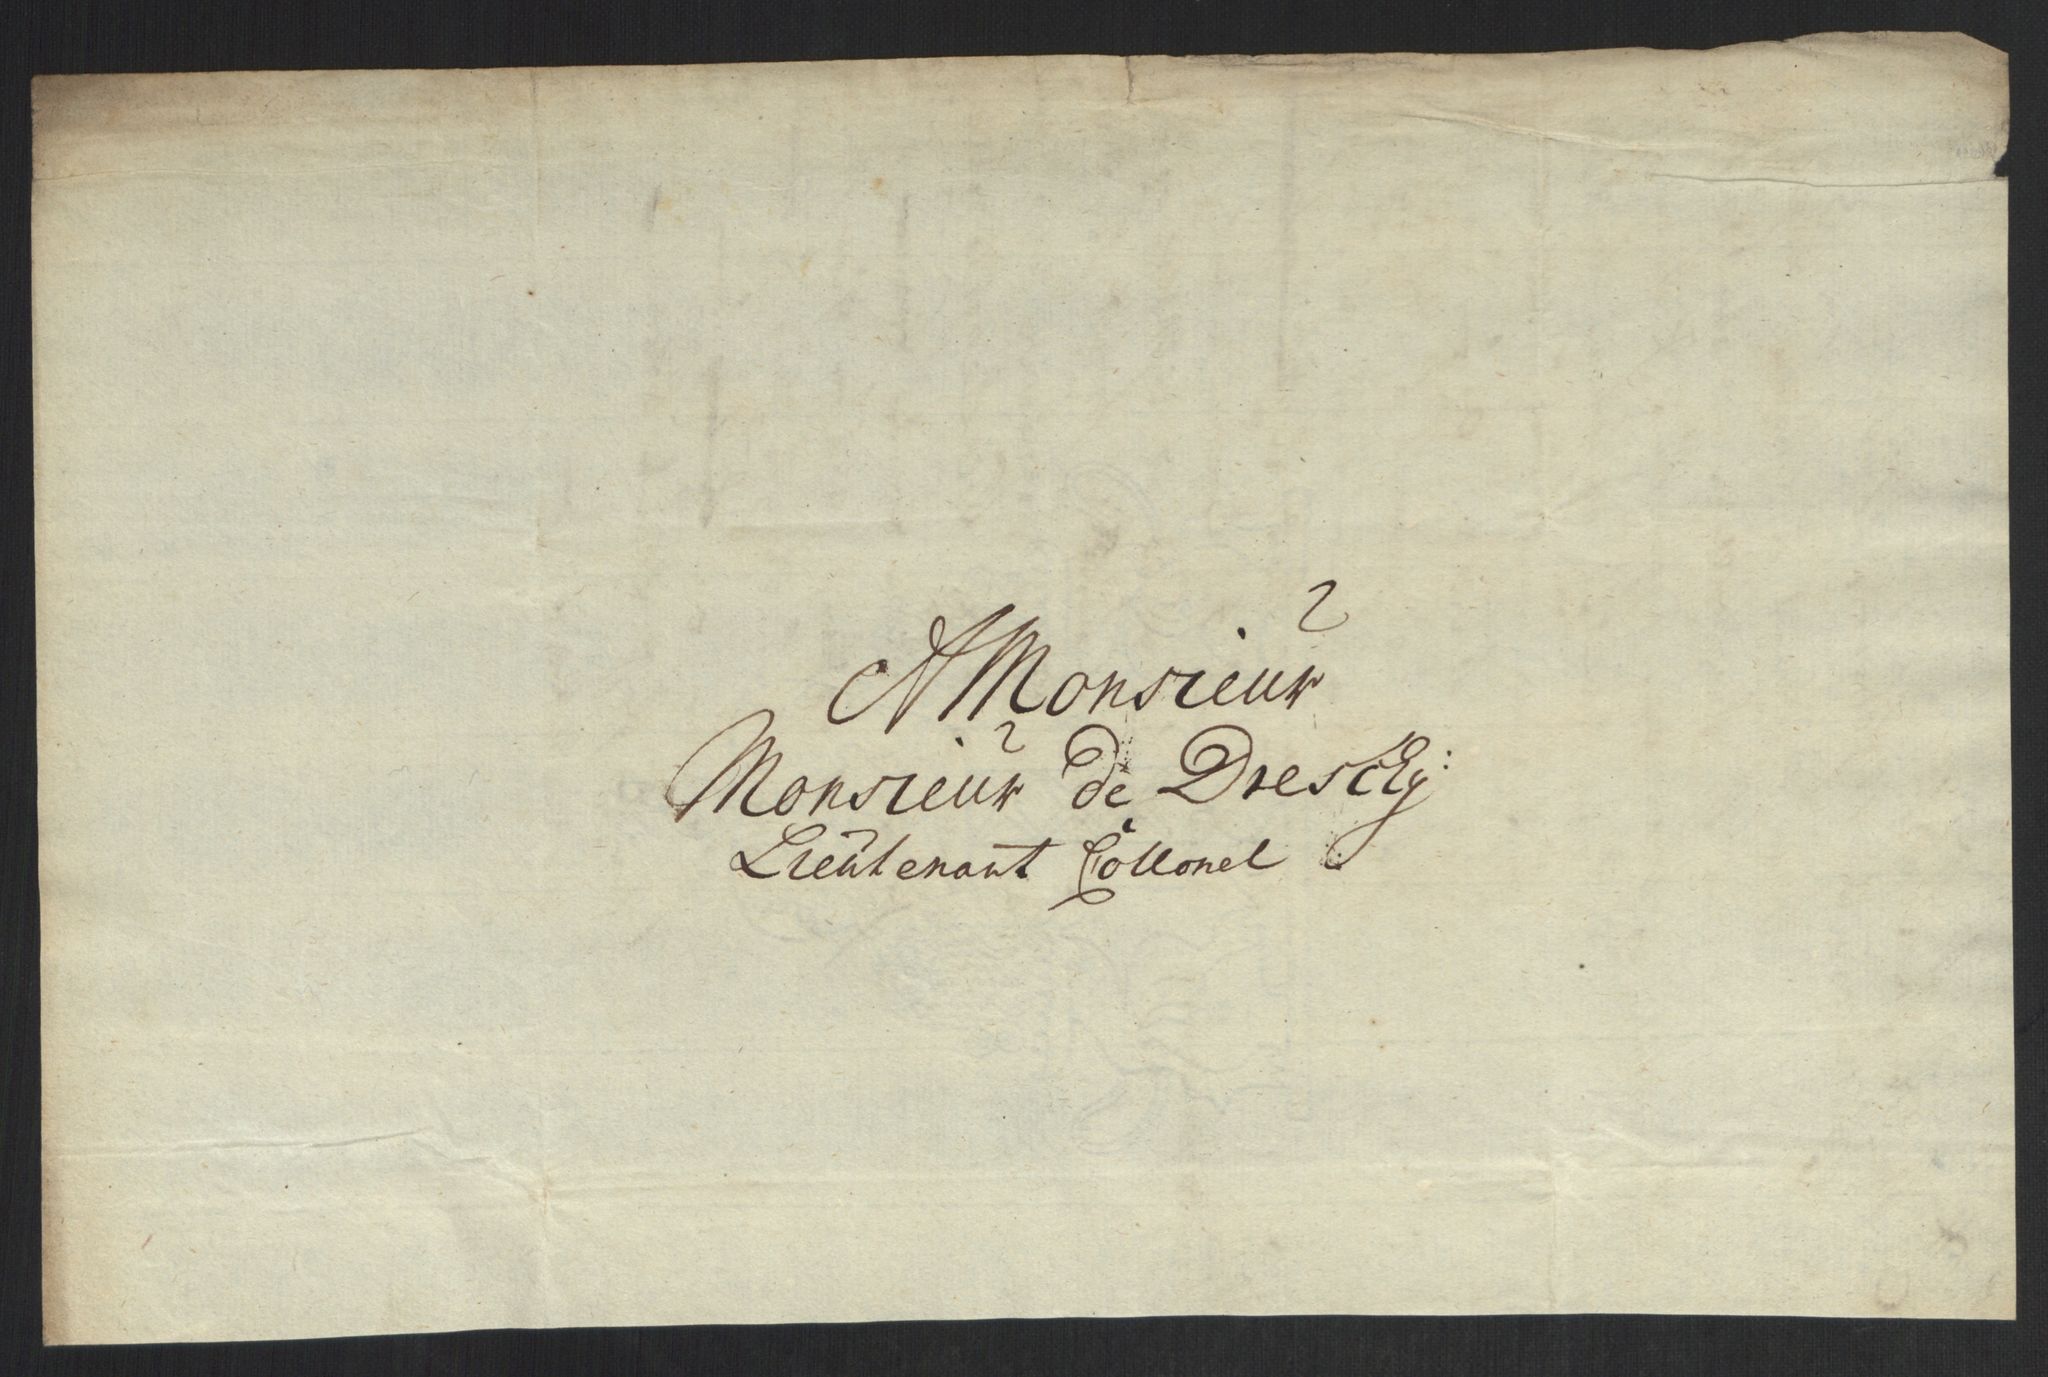 A Monsieur
Monsieur de Dresky:
Lieutenant Collonel